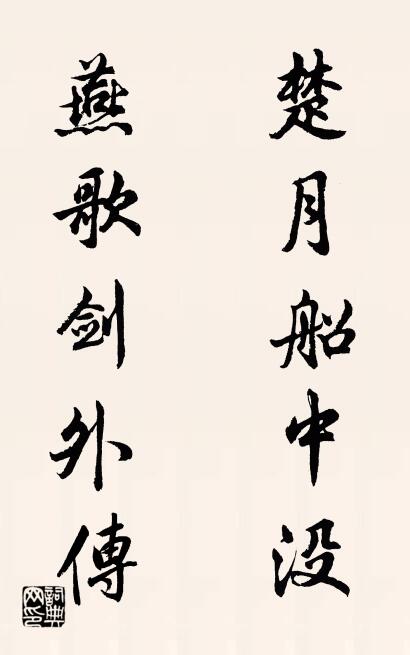 楚月船中没
燕歌剑外傳
詞典网印